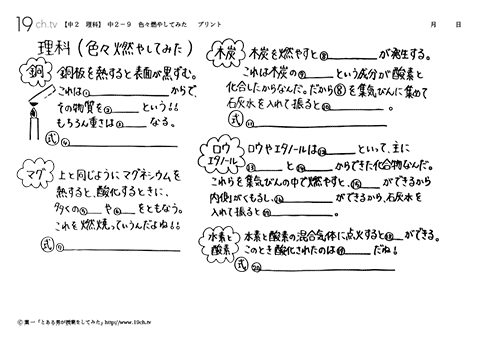 19 ch.tv 【中2 理科】 中2-9 色々燃やしてみた プリント 月 日
理科(色々燃やしてみた)
銅
銅板を熱すると表面が黒ずむ。
これは①____からで、
その物質を②____という!!
もちろん重さは③____なる。
式 ④____
マグ
上と同じようにマグネシウムを
熱すると、酸化するときに、
多くの⑤____や⑥____をともなう。
これを燃焼っていうんだよね!!
式 ⑦____
木炭
木炭を燃やすと⑧____が発生する。
これは木炭の⑨____という成分が酸素と
化合したからなんだ。だから⑧を集気びんに集めて
石灰水を入れて振ると⑩____。
式 ⑪____
ロウ エタノール
ロウやエタノールは⑫____といって、主に
⑬____と⑭____からできた化合物なんだ。
これらを集気びんの中で燃やすと、⑮____ができるから
内側がくもるし、⑯____ができるから、石灰水を
入れて振ると⑰____。
水素と酸素
水素と酸素の混合気体に点火すると⑱____ができる。
このとき酸化されたのは⑲____だね!
式 ⑳____
© 葉一「とある男が授業をしてみた」http://www.19ch.tv